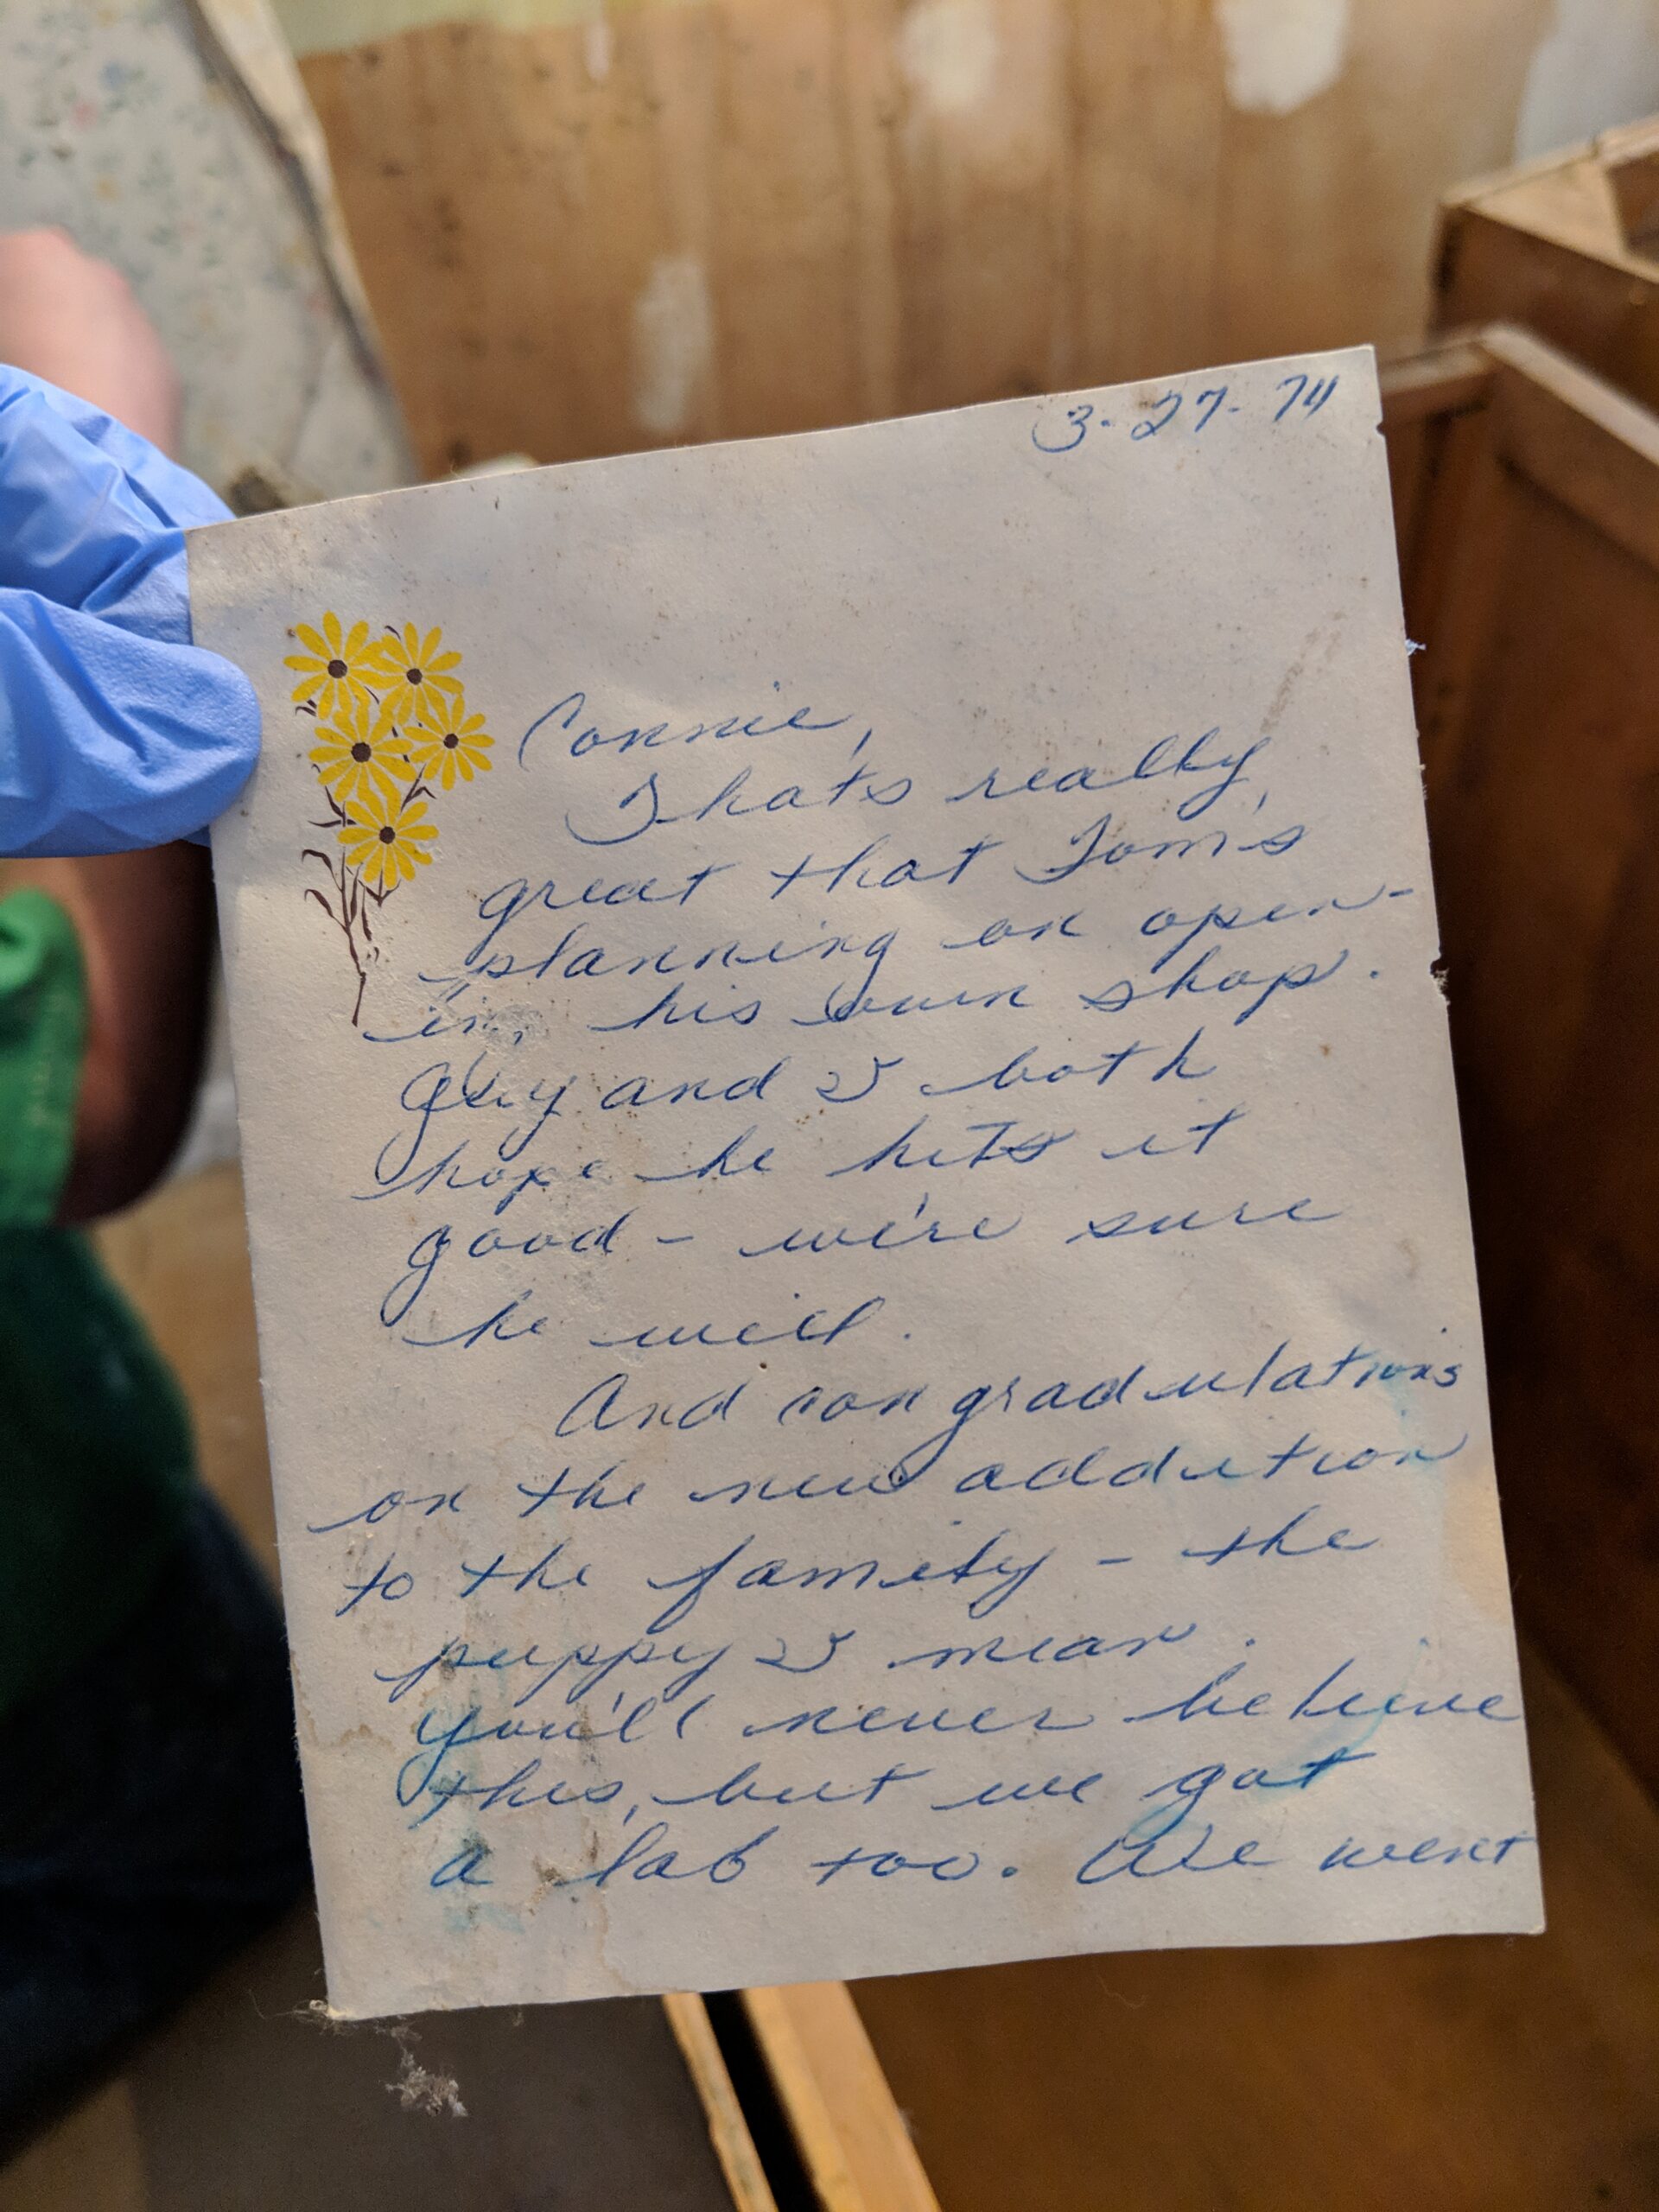 3-27-74
Connie,
That's really
great that Tom's
planning on open-
in, his own shop.
Guy and I both
hope he hits it
good - we're sure
he will.
And congradulations
on the new addition
to the family - the
puppy I mean.
You'll never believe
this, but we got
a lab too. We went